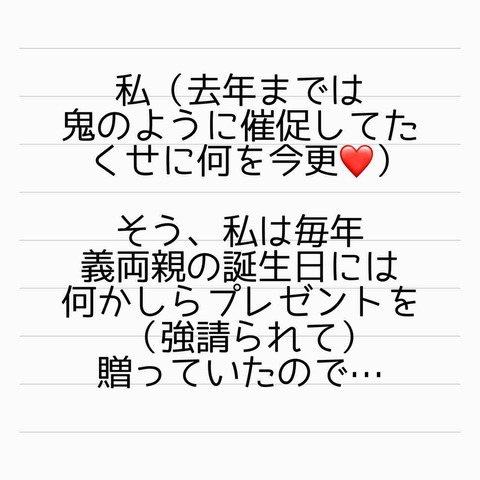 私（去年までは
鬼のように催促してた
くせに何を今更❤️）
そう、私は毎年
義両親の誕生日には
何かしらプレゼントを
（強請られて）
贈っていたので…